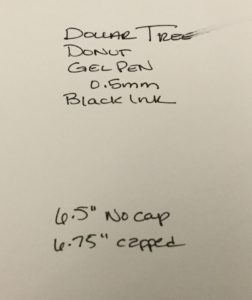 Dollar Tree
Donut
Gel Pen
0.5mm
Black Ink
6.5" No cap
6.75" capped